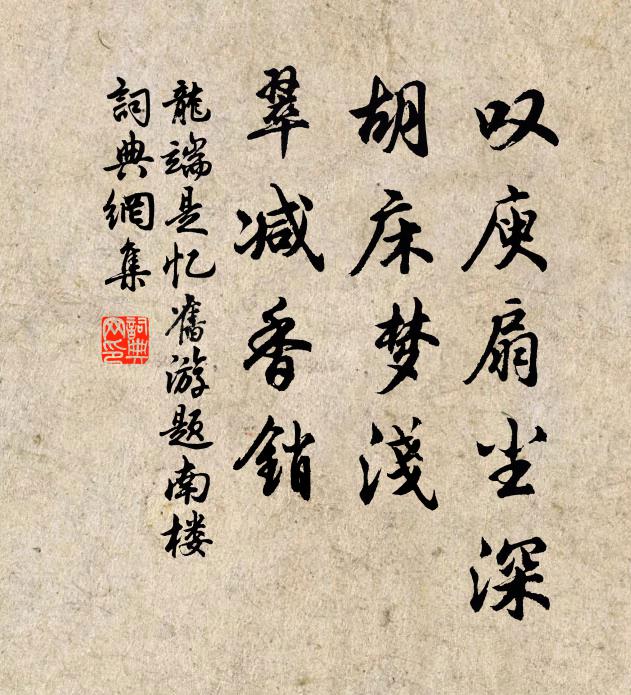 叹庾扇尘深
胡床梦浅
翠减香销
龍端是忆舊游题南楼
詞典網集
詞典
网印